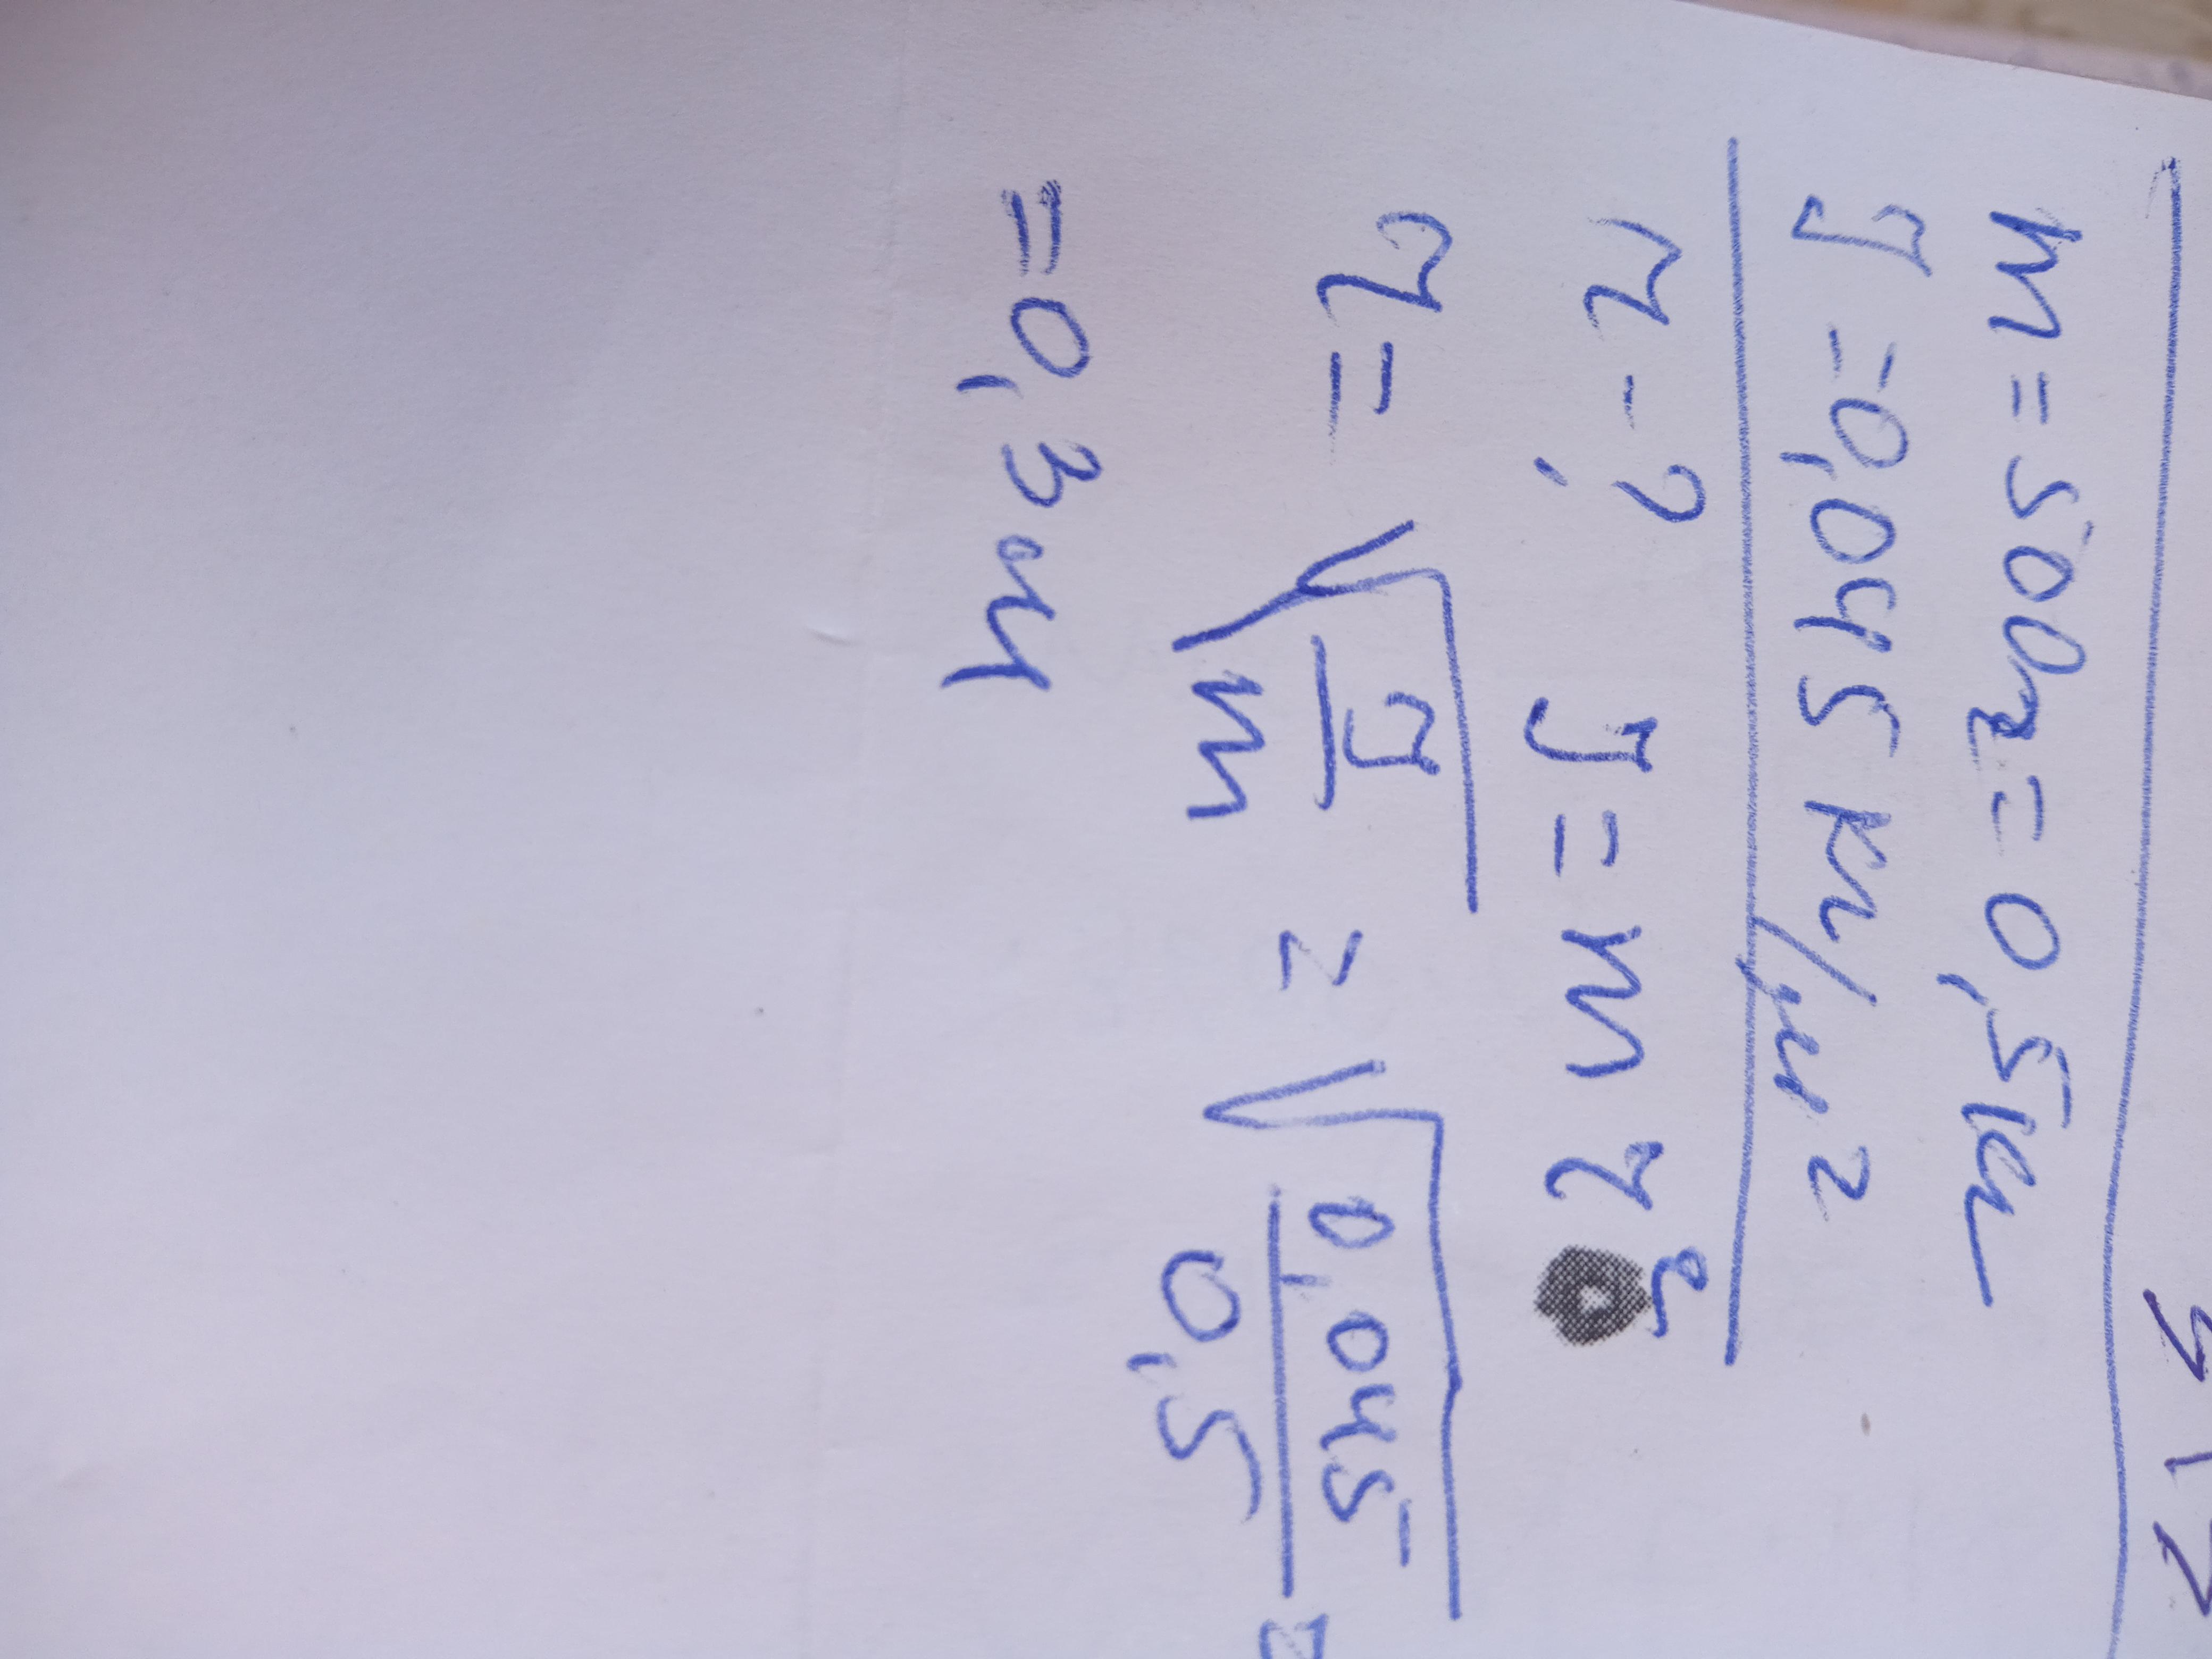 m = 500г = 0,5кг
J = 0,045 кг/м²
r - ?
J = mr²
r = √J/m = √0,045/0,5 =
= 0,3 м